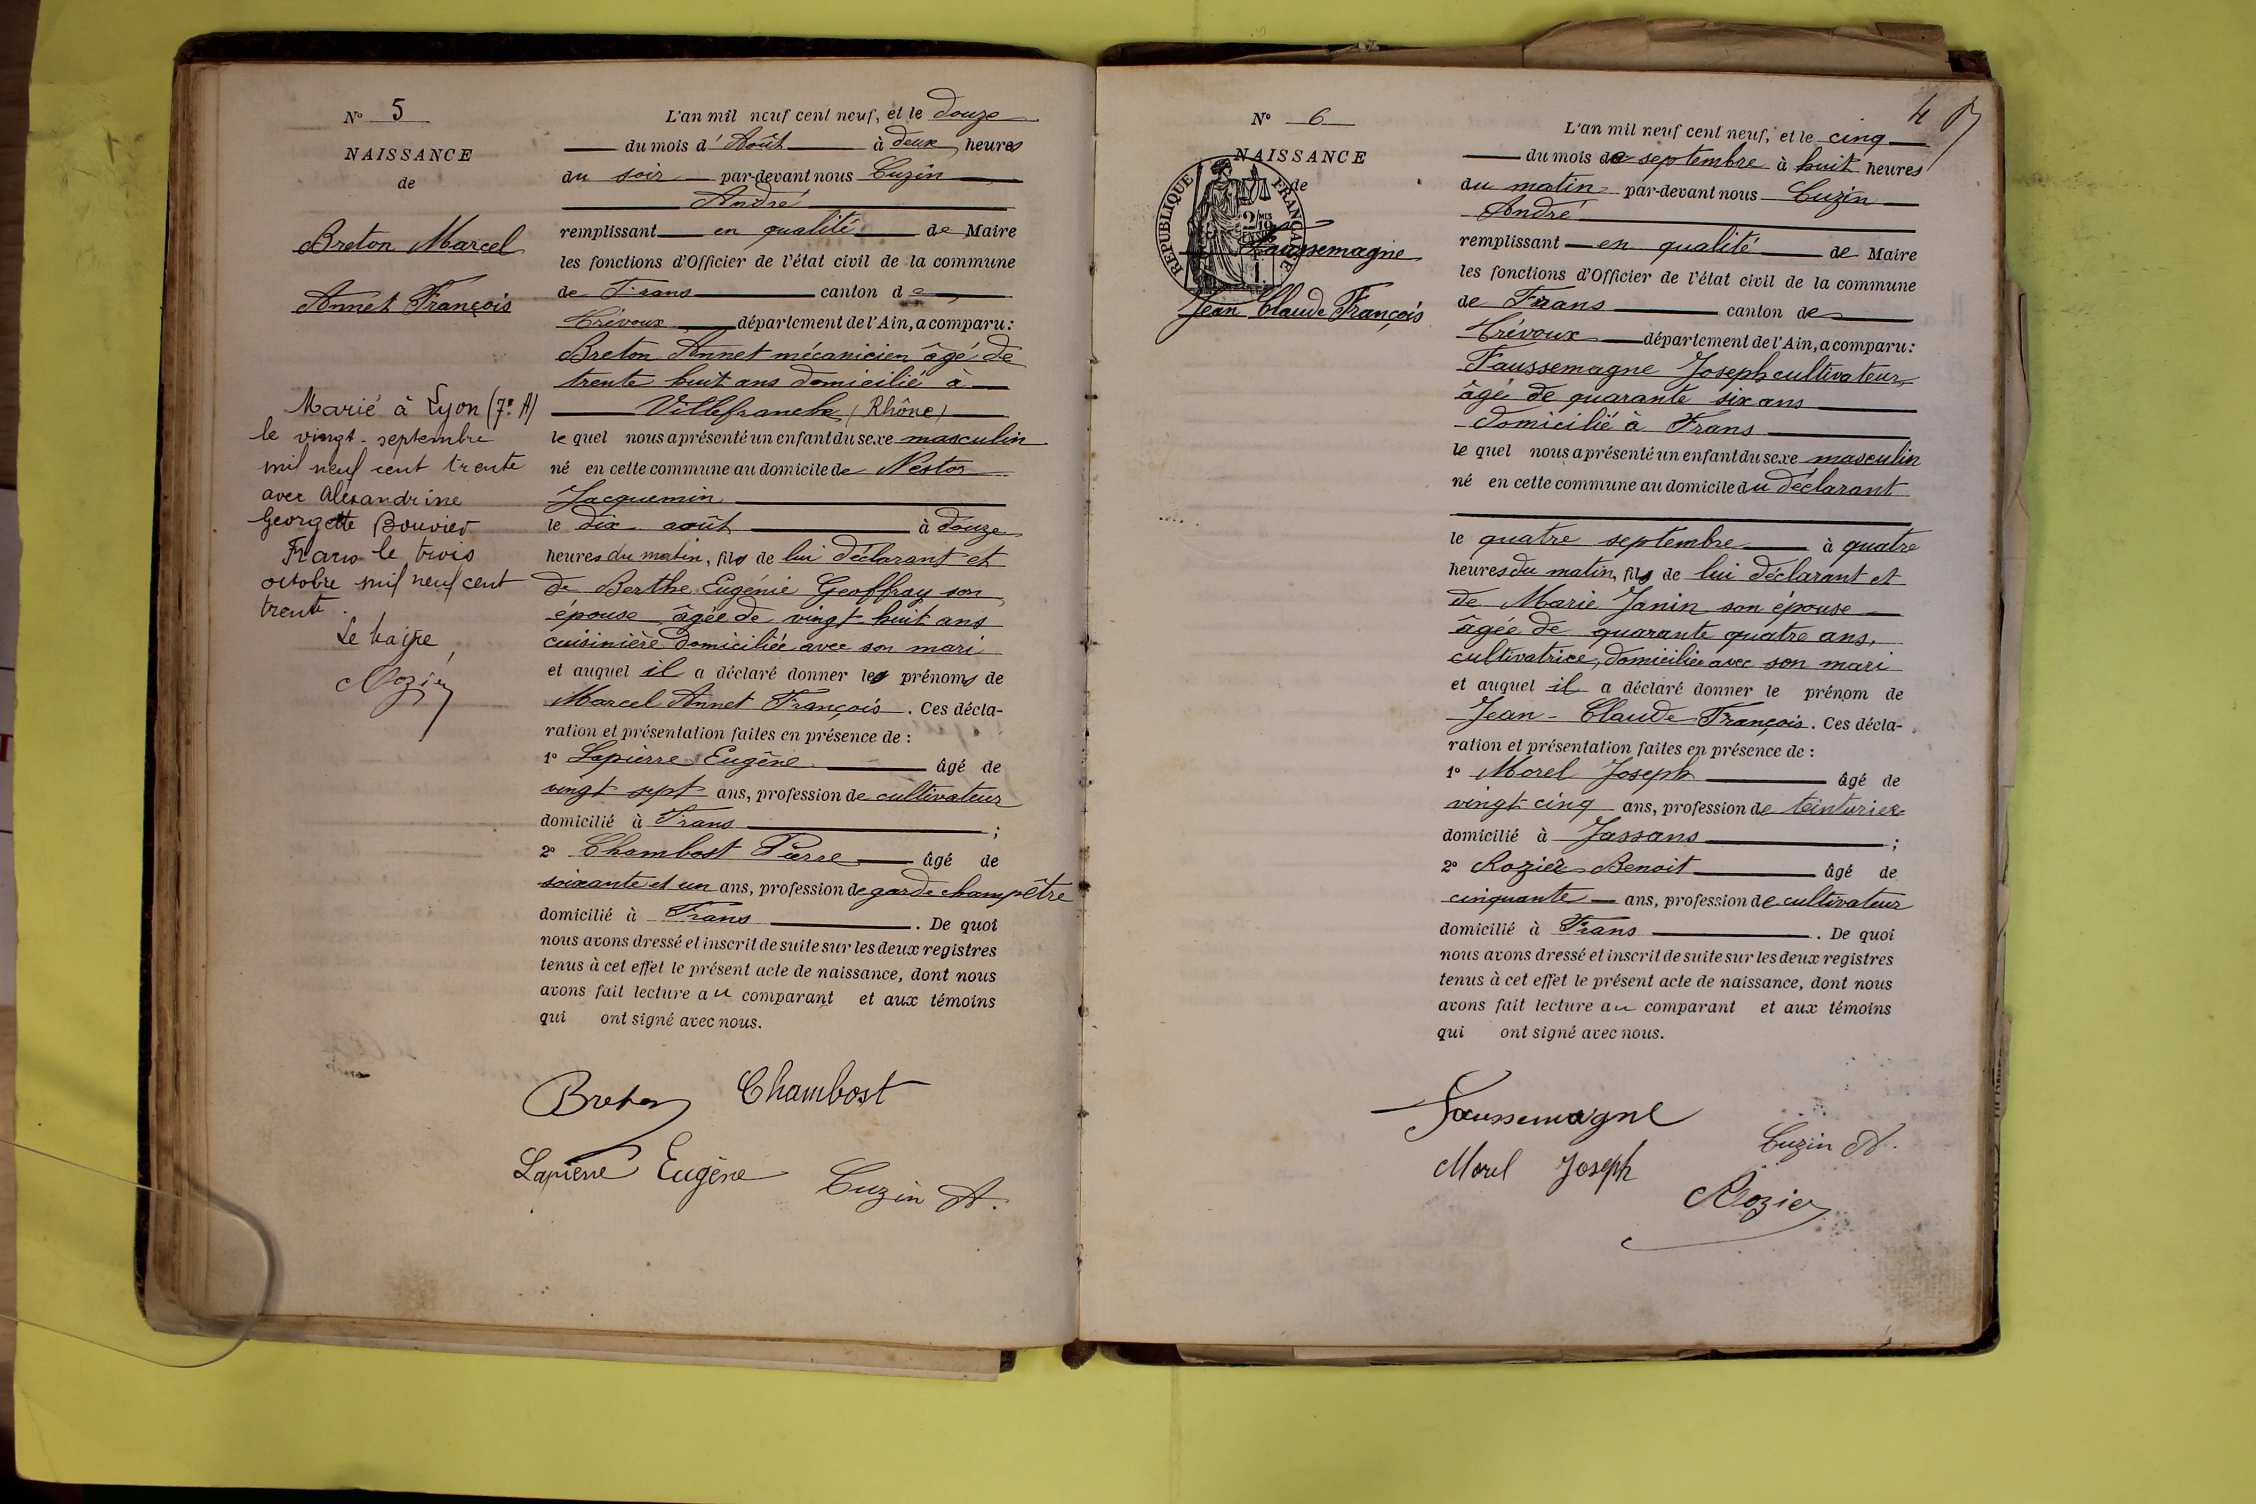 N° 5
NAISSANCE
de
Breton Marcel
Annet François
Marié à Lyon (7e A)
le vingt septembre
mil neuf cent trente
avec Alexandrine
Georgette Bouvier
Frans le trois
octobre mil neuf cent
trente.
Le Maire
Rozier
L'an mil neuf cent neuf, et le douze
du mois d'Août à deux heures
du soir par-devant nous Cuzin
André
remplissant en qualité de Maire
les fonctions d'Officier de l'état civil de la commune
de Frans canton de
Trévoux département de l'Ain, a comparu :
Breton Annet mécanicien âgé de
trente huit ans domicilié à
Villefranche (Rhône)
lequel nous a présenté un enfant du sexe masculin
né en cette commune au domicile de Nestor
Jacquemin
le dix août à douze
heures du matin, fils de lui déclarant et
de Berthe Eugénie Geoffray son
épouse âgée de vingt huit ans
cuisinière domiciliée avec son mari
et auquel il a déclaré donner les prénoms de
Marcel Annet François. Ces décla-
ration et présentation faites en présence de :
1° Lapierre Eugène âgé de
vingt sept ans, profession de cultivateur
domicilié à Frans ;
2° Chambost Pierre âgé de
soixante et un ans, profession de garde champêtre
domicilié à Frans . De quoi
nous avons dressé et inscrit de suite sur les deux registres
tenus à cet effet le présent acte de naissance, dont nous
avons fait lecture au comparant et aux témoins
qui ont signé avec nous.
Breton Chambost
Lapierre Eugène Cuzin A.
4
N° 6
NAISSANCE
de
RÉPUBLIQUE FRANÇAISE
Faussemagne
Jean Claude François
L'an mil neuf cent neuf, et le cinq
du mois de septembre à huit heures
du matin par-devant nous Cuzin
André
remplissant en qualité de Maire
les fonctions d'Officier de l'état civil de la commune
de Frans canton de
Trévoux département de l'Ain, a comparu :
Faussemagne Joseph cultivateur
âgé de quarante six ans
domicilié à Frans
lequel nous a présenté un enfant du sexe masculin
né en cette commune au domicile du déclarant
le quatre septembre à quatre
heures du matin, fils de lui déclarant et
de Marie Janin son épouse
âgée de quarante quatre ans,
cultivatrice, domiciliée avec son mari
et auquel il a déclaré donner le prénom de
Jean-Claude François. Ces décla-
ration et présentation faites en présence de :
1° Morel Joseph âgé de
vingt-cinq ans, profession de teinturier
domicilié à Jassans ;
2° Rozier Benoit âgé de
cinquante ans, profession de cultivateur
domicilié à Frans . De quoi
nous avons dressé et inscrit de suite sur les deux registres
tenus à cet effet le présent acte de naissance, dont nous
avons fait lecture au comparant et aux témoins
qui ont signé avec nous.
Faussemagne
Cuzin A.
Morel Joseph
Rozier